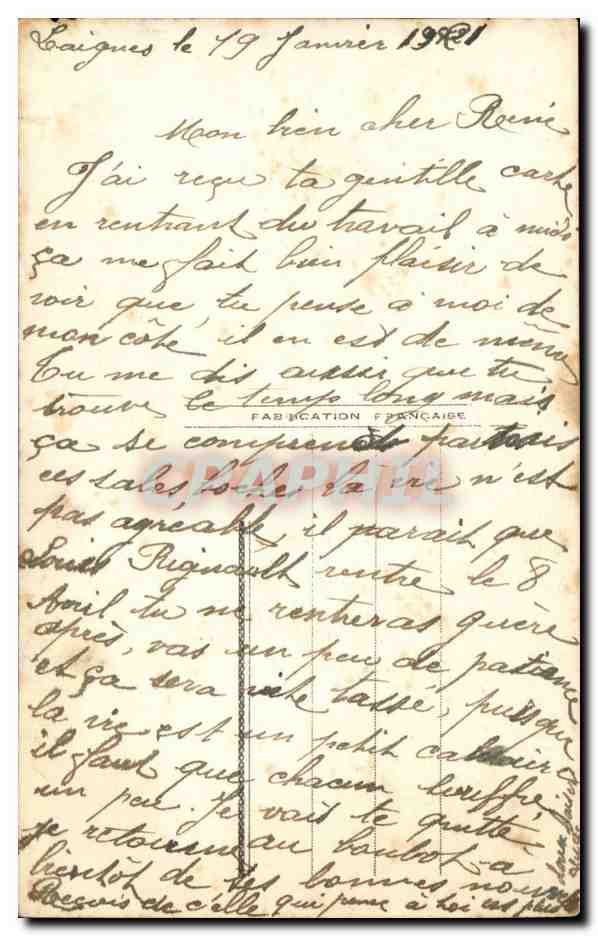 Laignes le 19 Janvier 1921
Mon bien cher René
J'ai reçu ta gentille carte
en rentrant du travail à midi
ça me fait bien plaisir de
voir que tu pense à moi de
mon côté il en est de même
Tu me dis aussi que tu
trouve le temps long mais
FABRICATION FRANÇAISE
ça se comprend
CPAPHIL
ces sales boches la vie n'est
pas agréable, il parait que
Louis rentre le 8
Avril tu ne rentreras guère
après, vas un peu de patience
et ça sera vite tassé, puisque
la vie est un petit
il faut que chacun souffre
un peu. Je vais te quitte
je retourne au boulot à
bientôt de tes bonnes
Reçois de c'elle qui pense à toi